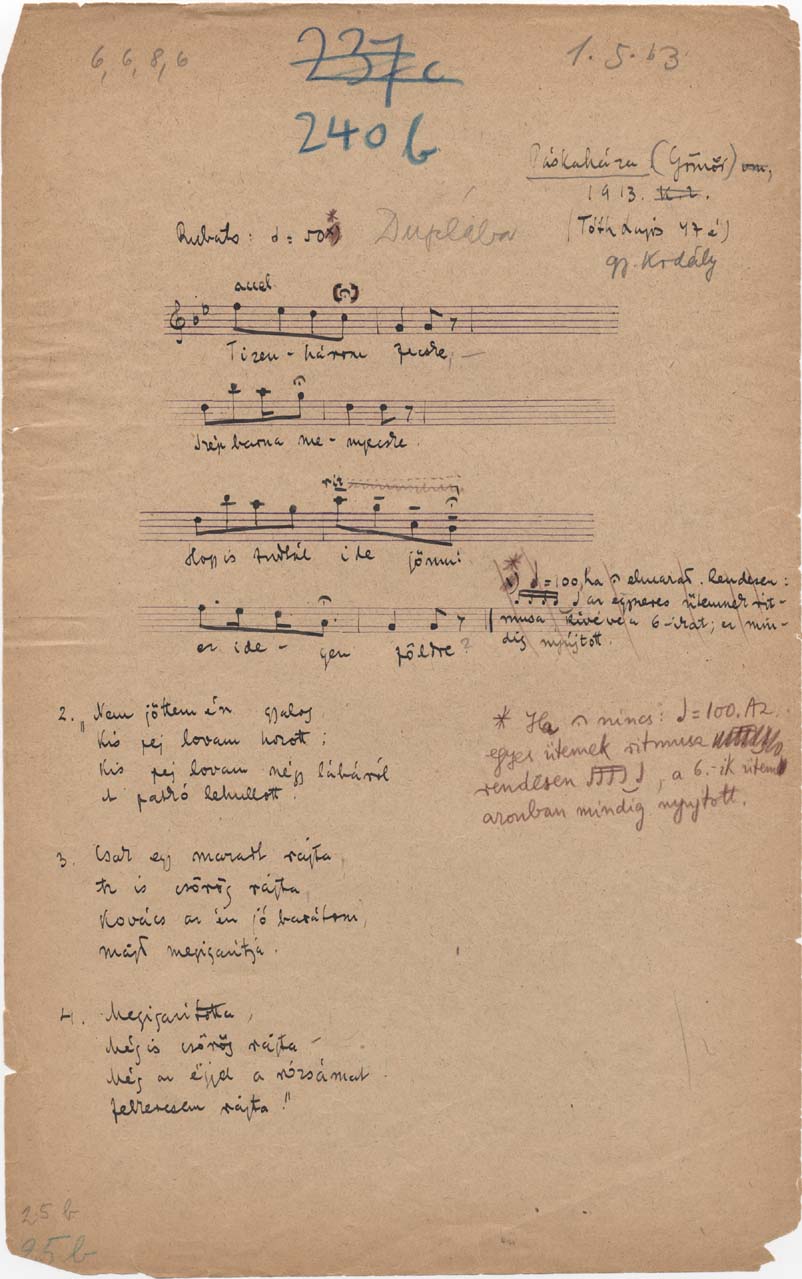 6, 6, 8, 6
237c
240b
1.5.63
Páskaháza (Gömör) vm,
1913.
(Tóth Lajos 47 é)
gy. Kodály
Rubato: = 50 *)
Duplába
accel.
Tizen-három fecske, —
Szép barna me-nyecske.
rit
Hogyis tudtál ide jönni
ez ide- gen földre?
*) = 100, ha elmarad. Rendesen:
az egyneres ütemnek rit-
musa kivéve a 6-ikat; ez min-
dig nyújtott.
* Ha nincs: = 100. Az
egyes ütemek ritmusa
rendesen , a 6.-ik ütem
azonban mindig nyujtott.
2. „Nem jöttem én gyalog,
Kis pej lovam hozott;
Kis pej lovam négy lábáról
A patkó lehullott.
3. Csak egy maradt rajta,
Az is csörög rajta,
Kovács az én jó barátom,
majd megigazítja.
4. Megigazította,
Mégis csörög rajta —
Még az éjjel a rózsámat
felkeresem rajta!"
25 b
25 b